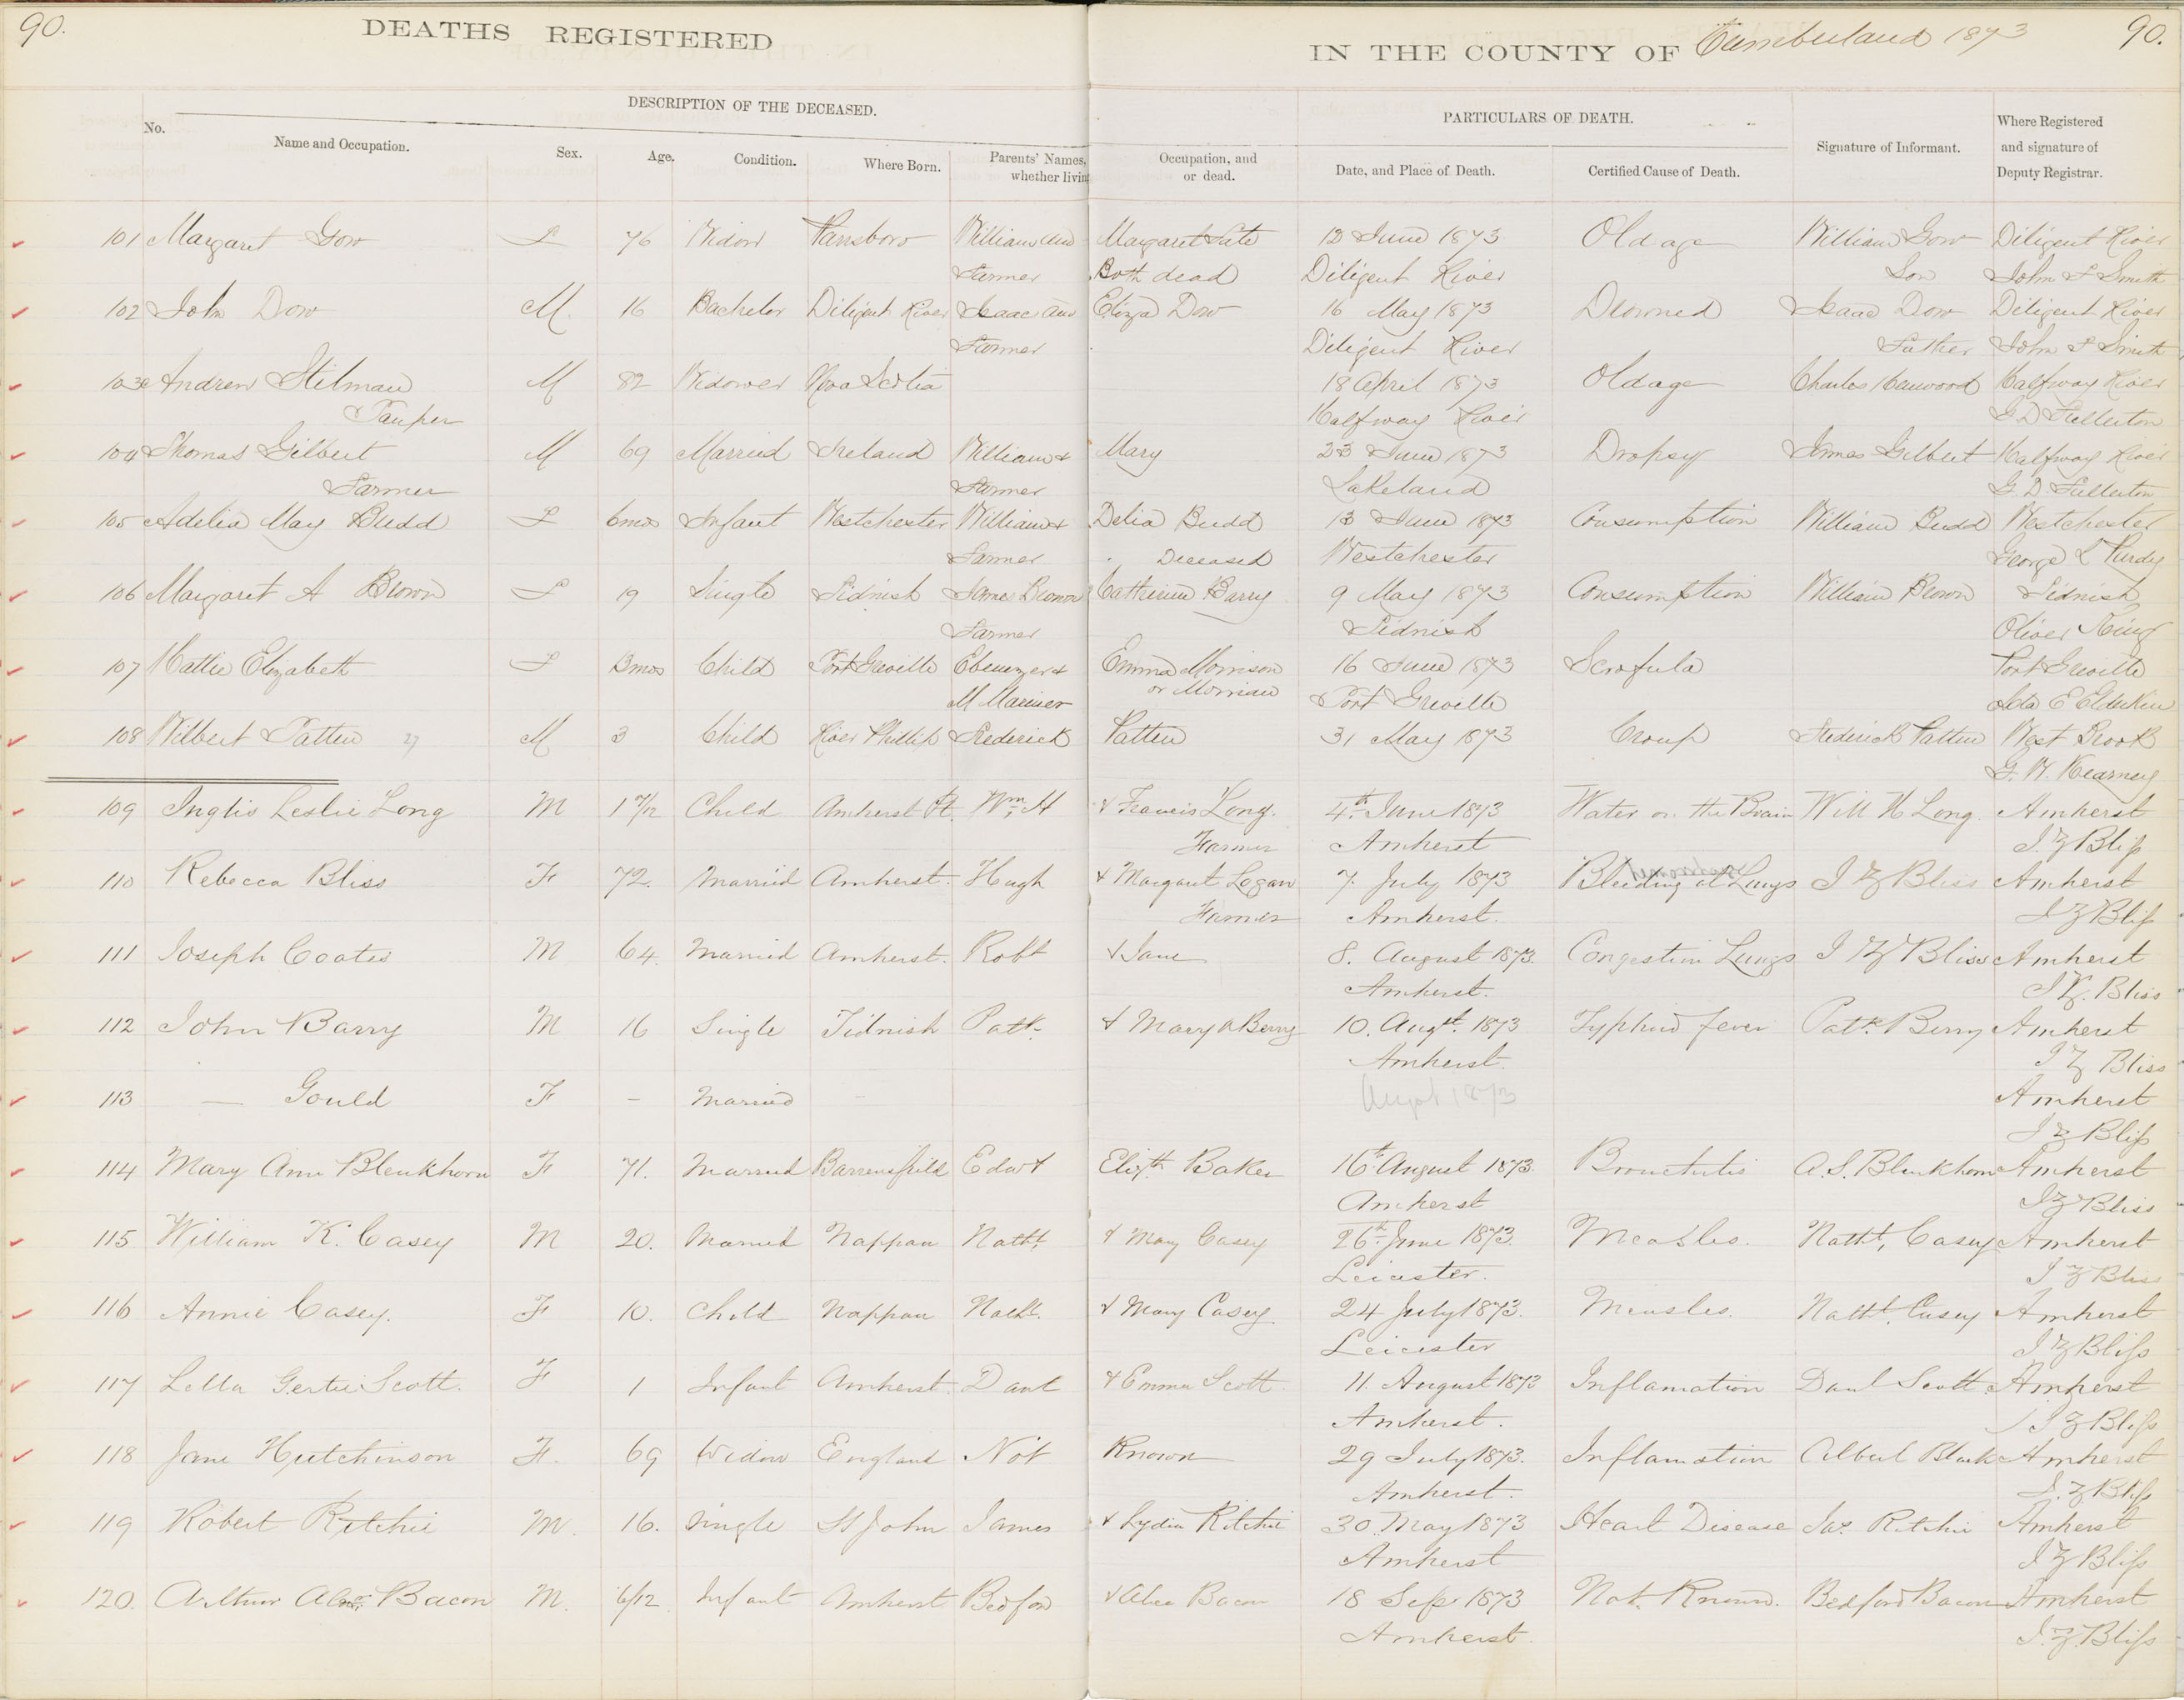 90. DEATHS REGISTERED IN THE COUNTY OF Cumberland 1873 90.
DESCRIPTION OF THE DECEASED. PARTICULARS OF DEATH.
No. Name and Occupation. Sex. Age. Condition. Where Born. Parents' Names, whether living Occupation, and or dead. Date, and Place of Death. Certified Cause of Death. Signature of Informant. Where Registered and signature of Deputy Registrar.
101 Margaret Gow F 76 Widow Parrsboro William and Margaret 12 June 1873 Old age William Gow Diligent River
Farmer Both dead Diligent River Son John F Smith
102 John Dow M. 16 Bachelor Diligent River Isaac and Eliza Dow 16 May 1873 Drowned Isaac Dow Diligent River
Farmer Diligent River Father John F Smith
103 Andrew Stilman M 82 Widower Nova Scotia 18 April 1873 Old age Charles Halfway River
Pauper Halfway River G D Fullerton
104 Thomas Gilbert M 69 Married Ireland William & Mary 23 June 1873 Dropsy James Gilbert Halfway River
Farmer Farmer Lakeland G. D. Fullerton
105 Adelia May Budd F 6mos Infant Westchester William & Delia Budd 13 June 1873 Consumption William Budd Westchester
Farmer Deceased Westchester George L Purdy
106 Margaret A Brown F 19 Single Tidnish James Brown Catherine Barry 9 May 1873 Consumption William Brown Tidnish
Farmer Tidnish Oliver King
107 Hattie Elizabeth F 13mos Child Port Greville Ebenezer & Emma Morrison 16 June 1873 Scrofula Port Greville
M Mariner or Port Greville E Elderkin
108 Wilbert Patten 27 M 3 Child River Phillip Frederick Patten 31 May 1873 Croup Frederick Patten West Brook
G. W. Kearney
109 Inglis Leslie Long M 1 7/12 Child Amherst Pt. Wm H & Francis Long. 4th June 1873 Water on the Brain Will H Long Amherst
Farmer Amherst J. Z Bliss
110 Rebecca Bliss F 72. Married Amherst. Hugh & Margaret Logan 7. July 1873 Bleeding at Lungs J Z Bliss Amherst
Farmer Amherst. J Z Bliss
111 Joseph Coates M 64. Married Amherst. Robt & Jane 8. August 1873. Congestion Lungs J Z Bliss Amherst
Amherst. J Z. Bliss
112 John Barry M 16 Single Tidnish Patk. & Mary A Berry 10. Augt. 1873 Typhird fever Patk Berry Amherst
Amherst. J Z Bliss
113 — Gould F – Married – Augst 1873 Amherst
J Z Bliss
114 Mary Ann Blenkhorn F 71. Married Barronsfield Edwd & Elizth Baker 16th August 1873. Bronchitis A. S. Blenkhorn Amherst
Amherst J Z Bliss
115 William K. Casey M 20. Married Nappan Nathl. & Mary Casey 26th June 1873. Measles. Nathl. Casey Amherst
Leicester. J Z Bliss
116 Annie Casey. F 10. Child Nappan Nathl. & Mary Casey 24 July 1873. Measles. Nathl. Casey Amherst
Leicester J Z Bliss
117 Lella Gertie Scott. F 1 Infant Amherst. Danl & Emma Scott 11. August 1873 Inflamation Danl Scott. Amherst
Amherst. J Z Bliss
118 Jane Hutchinson F. 69 Widow England Not Known 29 July 1873. Inflamation Albert Black Amherst
Amherst. J. Z Bliss
119 Robert Ritchie M. 16. Single St John James & Lydia Ritchie 30 May 1873 Heart Disease Jas. Ritchie Amherst
Amherst J Z Bliss
120. Arthur Bacon M. 6/12 Infant Amherst Bedford & Alice Bacon 18 Sep 1873 Not Known. Bedford Bacon Amherst
Amherst. J. Z. Bliss